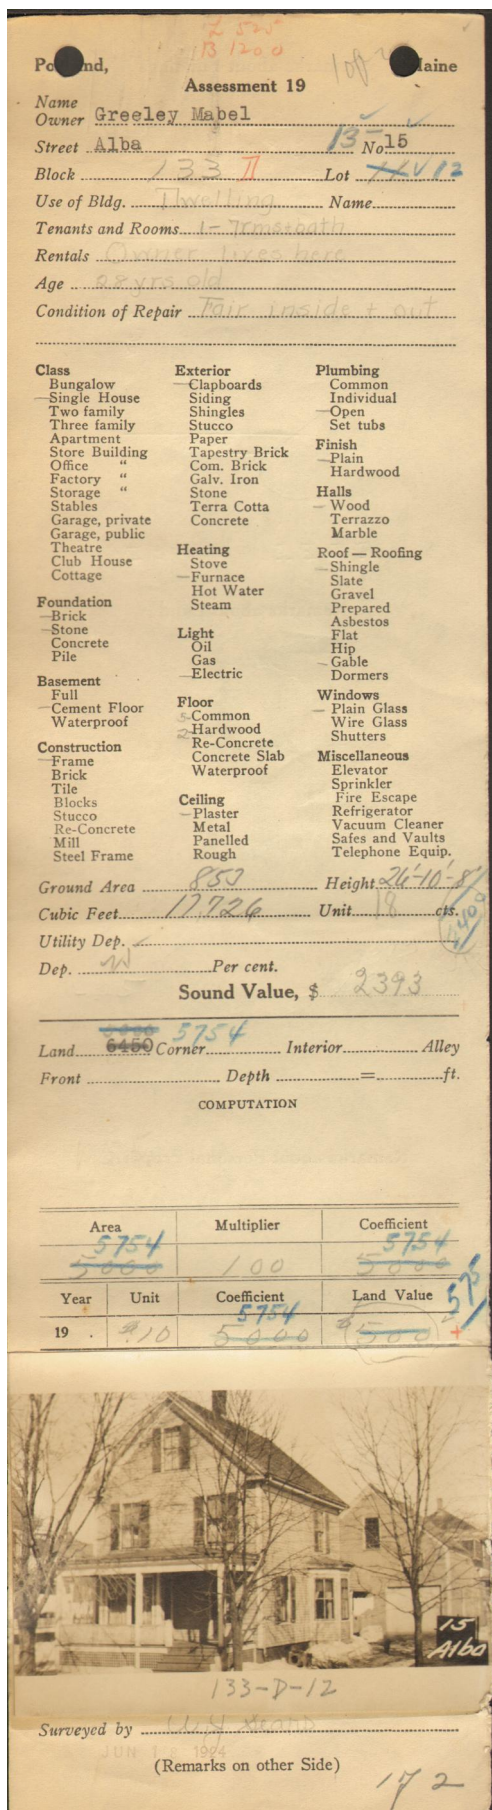 L 525
B 1200
Portland, Maine
Assessment 19
Name
Owner Greeley Mabel
Street Alba 13- No 15
Block 133 D Lot 12
Use of Bldg. Dwelling Name
Tenants and Rooms 1-7rms+bath
Rentals Owner lives here
Age 28 yrs old
Condition of Repair Fair inside + out
Class
Bungalow
Single House
Two family
Three family
Apartment
Store Building
Office "
Factory "
Storage "
Stables
Garage, private
Garage, public
Theatre
Club House
Cottage
Foundation
Brick
Stone
Concrete
Pile
Basement
Full
Cement Floor
Waterproof
Construction
Frame
Brick
Tile
Blocks
Stucco
Re-Concrete
Mill
Steel Frame
Exterior
Clapboards
Siding
Shingles
Stucco
Paper
Tapestry Brick
Com. Brick
Galv. Iron
Stone
Terra Cotta
Concrete
Heating
Stove
Furnace
Hot Water
Steam
Light
Oil
Gas
Electric
Floor
5 Common
2 Hardwood
Re-Concrete
Concrete Slab
Waterproof
Ceiling
Plaster
Metal
Panelled
Rough
Plumbing
Common
Individual
Open
Set tubs
Finish
Plain
Hardwood
Halls
Wood
Terrazzo
Marble
Roof — Roofing
Shingle
Slate
Gravel
Prepared
Asbestos
Flat
Hip
Gable
Dormers
Windows
Plain Glass
Wire Glass
Shutters
Miscellaneous
Elevator
Sprinkler
Fire Escape
Refrigerator
Vacuum Cleaner
Safes and Vaults
Telephone Equip.
Ground Area 853 Height 26'-10'-8'
Cubic Feet 17726 Unit 18 cts.
Utility Dep.
Dep. Per cent.
Sound Value, $ 2393
6000 5754
Land 6450 Corner Interior Alley
Front Depth = ft.
COMPUTATION
Area Multiplier Coefficient
5754 5754
5000 100 5000
Year Unit Coefficient Land Value 575
5754
19 . $.10 5000 $500 +
15
Alba
133-D-12
Surveyed by
JUN 1924
(Remarks on other Side)
172